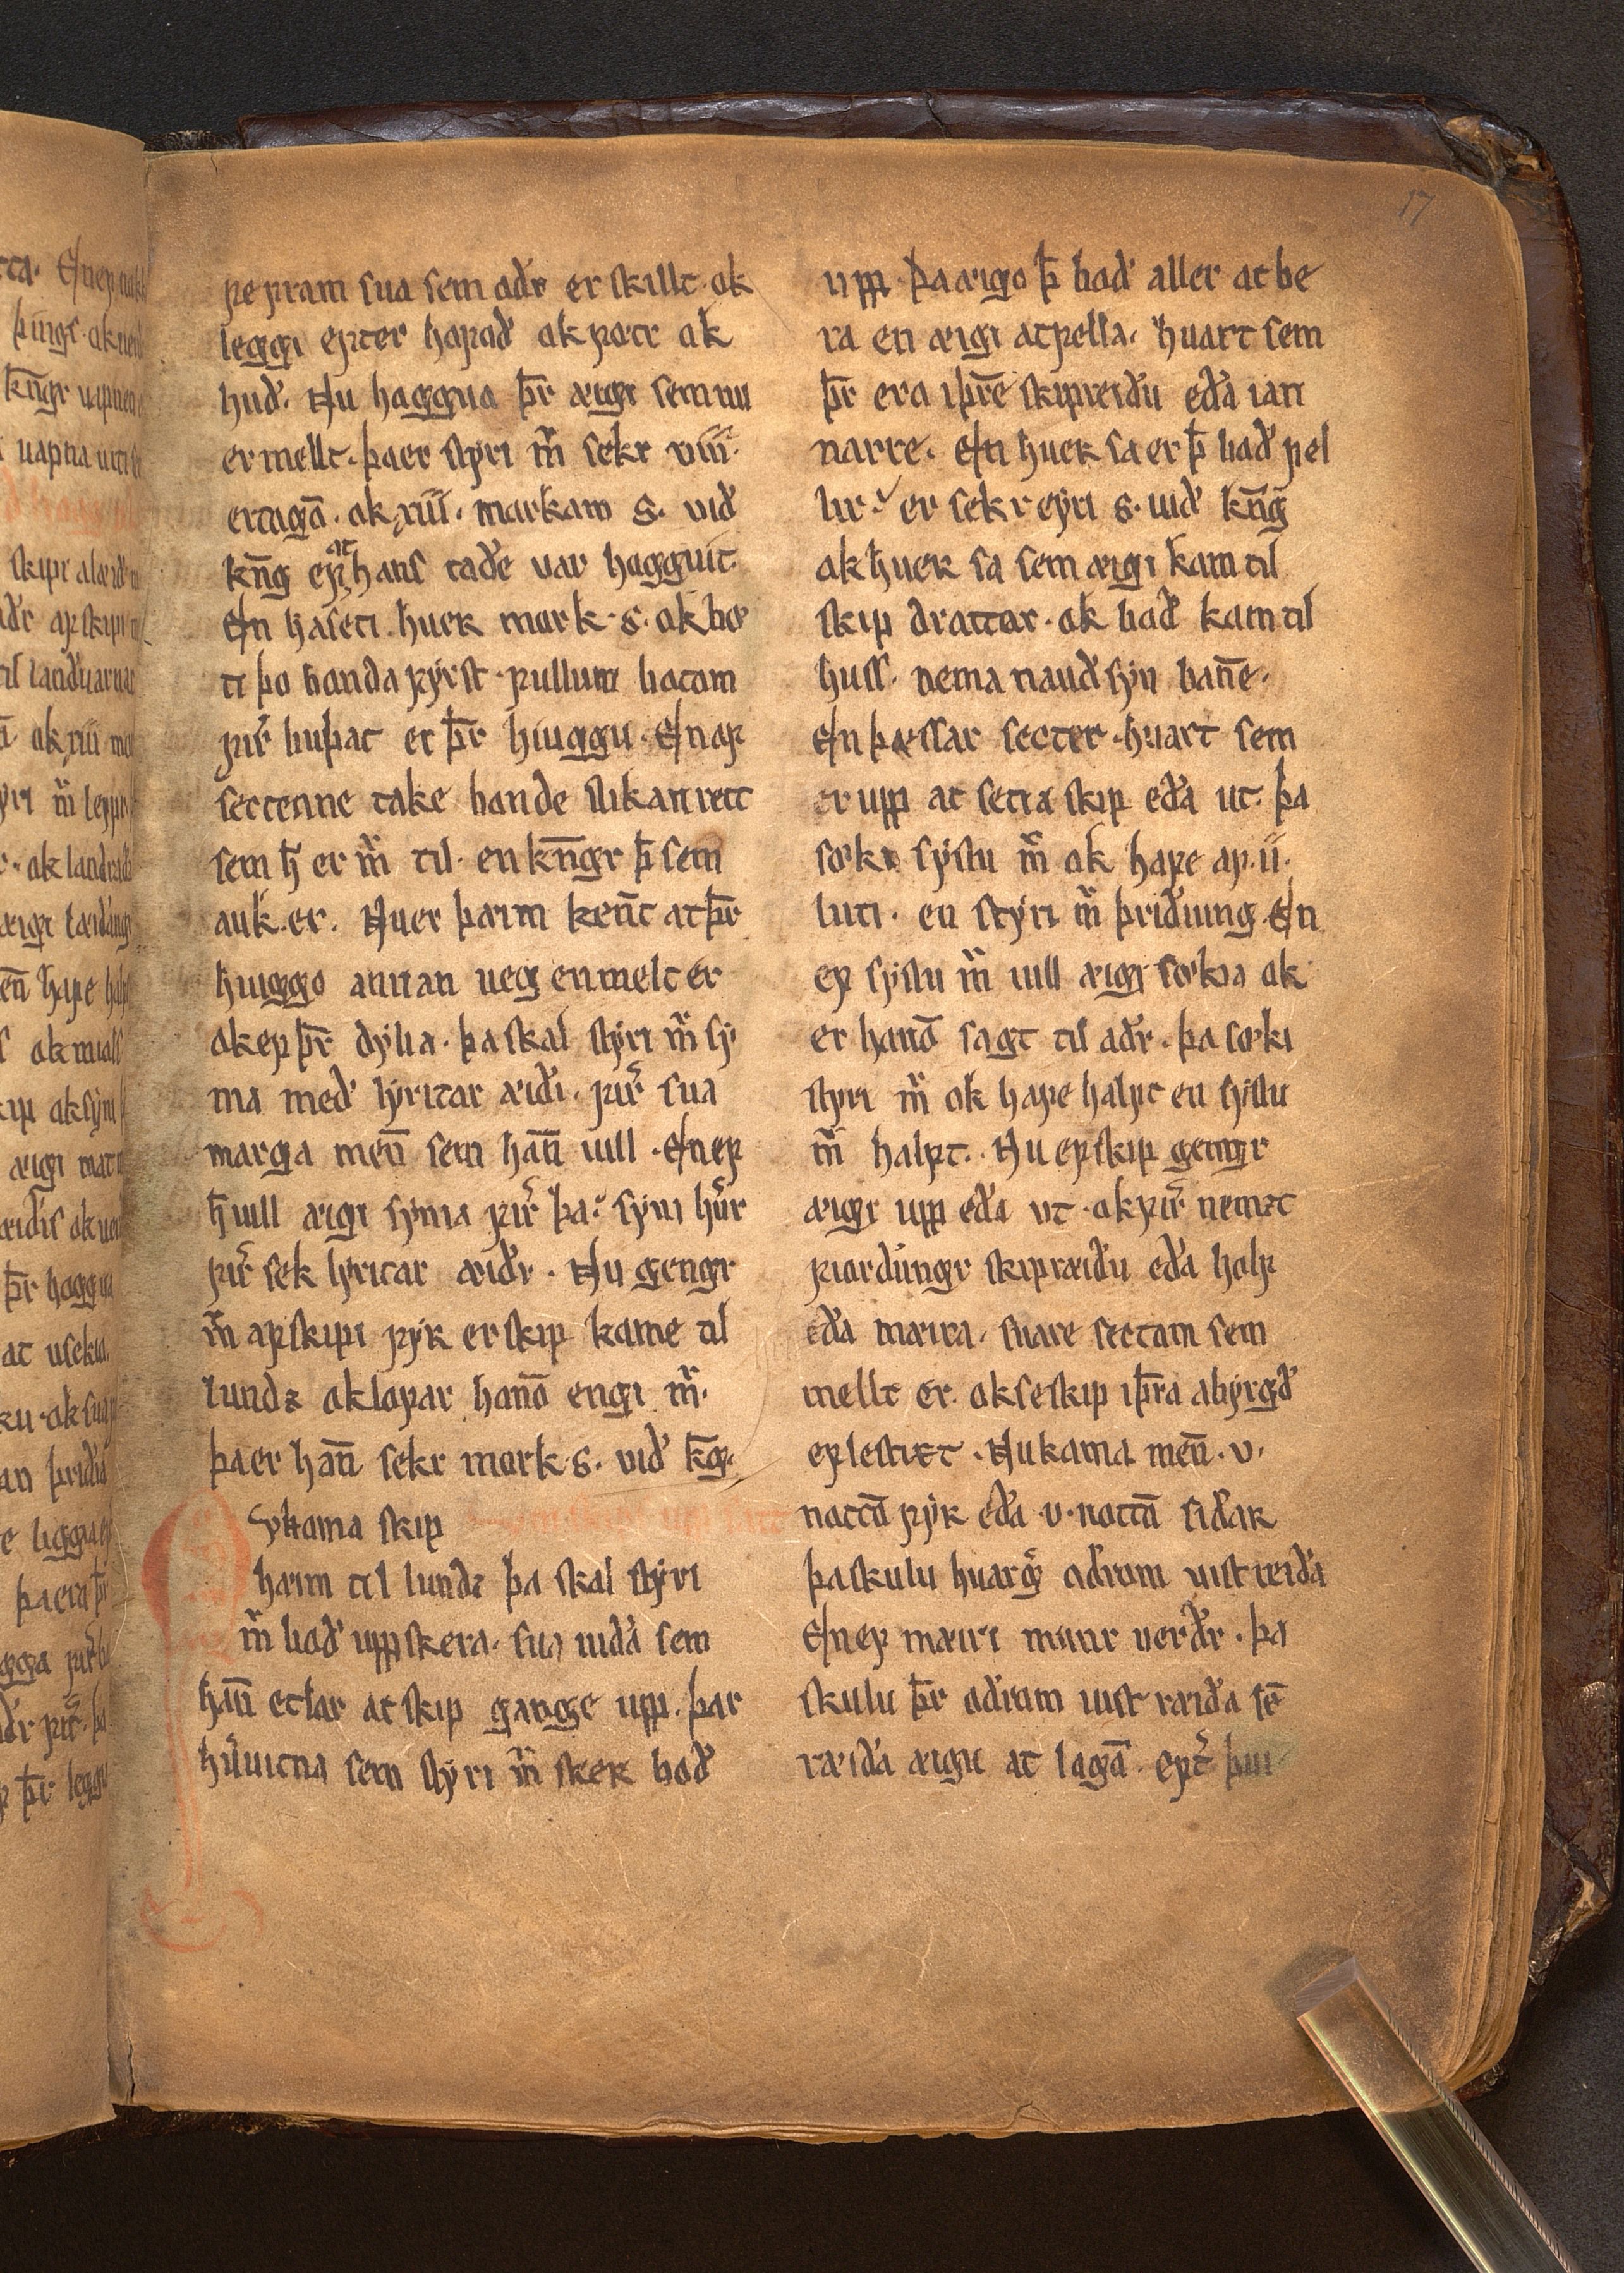 17
ꝼe ꝼram sua sem aðr er skillt ok
leggi epter hofuð ok fotr ok
huð. Nu haggua þr̄ æigi sem nu
er mellt. þa er styri m̄ sekr viii.
ertogā. ok xiii. markam s. við
kn̄g eꝼ at hans raðe var hogguit.
En haseti huer mork. s. ok bø
ti þo bonda fyrst. fullum botom
firͬ bufiat er þr̄ hiuggu. En af
sectenne take bonde slikan rett
sem h̄ er m̄ til. en kn̄gr þ̄ sem
auk. er. Nu er þæim ken̄t at þr̄
hiuggo annan ueg en melt er
ok ef þr̄ dylia. þa skal styri m̄ sy
ma með lyritar æiði. firͬ sua
marga men̄ sem han̄ uill. En ef
h̄ uill æigi syma firͬ þa. syni hūr
firͬ sek lyritar æiðr. Nu gengr
m̄ af skipi fyr er skip kome til
lundz ok lofar honō engi m̄.
þa er han̄ sekr mork s. við k̄g.
Nv koma skip
hæim til lundz þa skal styri
m̄ boð upp skera. sua uiða sem
han̄ etlar at skip gange upp. þar
hūuitna sem styri m̄ sker boð
upp. þa æigo þ̄ boð aller at be
ra en æigi at fella. huart sem
þr̄ ero i þr̄e skipreiðu eða i an
narre. En huer sa er þ̄ boð fel
lir. er sekr eyri s. uið kn̄g
ok huer sa sem æigi kam til
skip drattar. ok boð kam til
huss. nema nauðsyn ban̄e.
En þessar secter. huart sem
er upp at setia skip eða ut. þa
søke syslu m̄ ok hafe af. ii.
luti. en styri m̄ þriðiung. En
ef syslu m̄ uill æigi søkia ok
er honō sagt til aðr. þa søki
styri m̄ ok hafe halft en syslu
m̄ halft. Nu ef skip gengr
æigi upp eða vt. ok firͬ nemzt
fiorðungr skipræiðu eða holf
eða mæira. suare sectam sem
mellt er. ok se skip i þr̄a abyrgð
ef lestizt. Nu koma men̄. v.
nottō fyr eða v. nottō siðar
þa skulu huarg̃ oðrom uist reiða
En ef mæiri munr uerðr. þa
skulu þr̄ oðrum uist ræiða sē
ræiða æigu at lagō. efͭ þui